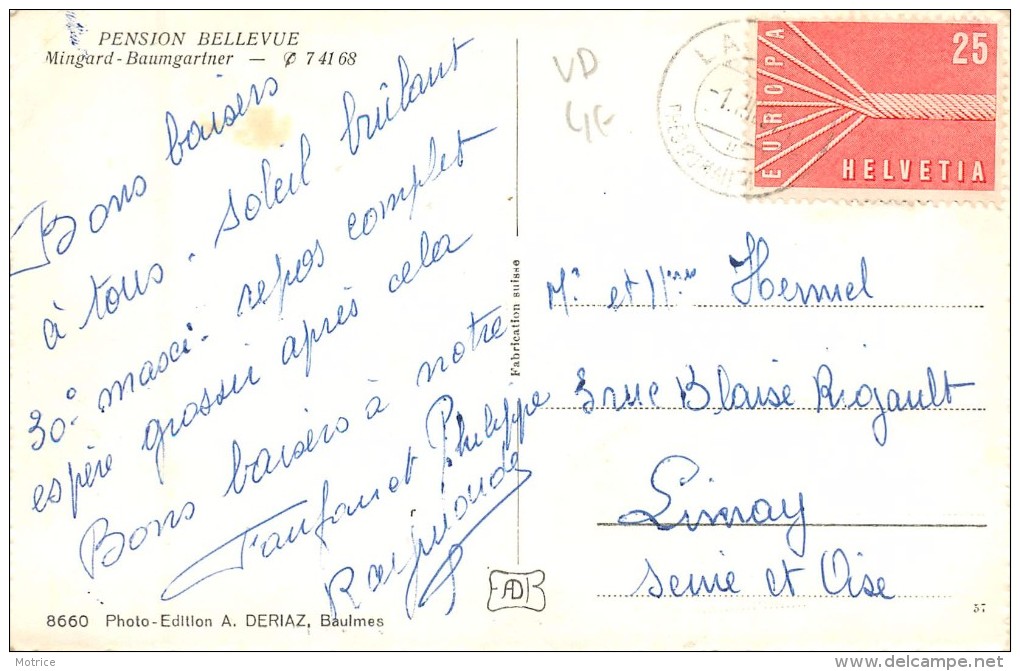 PENSION BELLEVUE
Mingard-Baumgartner — ✆ 7 41 68
Bons baisers
à tous. soleil brûlant
30° maxi. repos complet
espère grossir après cela
Bons baisers à notre
Fanfan et Philippe
Raymonde
8660 Photo-Edition A. DERIAZ, Baulmes
Fabrication suisse
EADB
VD
EUROPA
25
HELVETIA
Mr et Mme Hermel
3 rue Blaise Rigault
Limay
Seine et Oise
57
Motrice